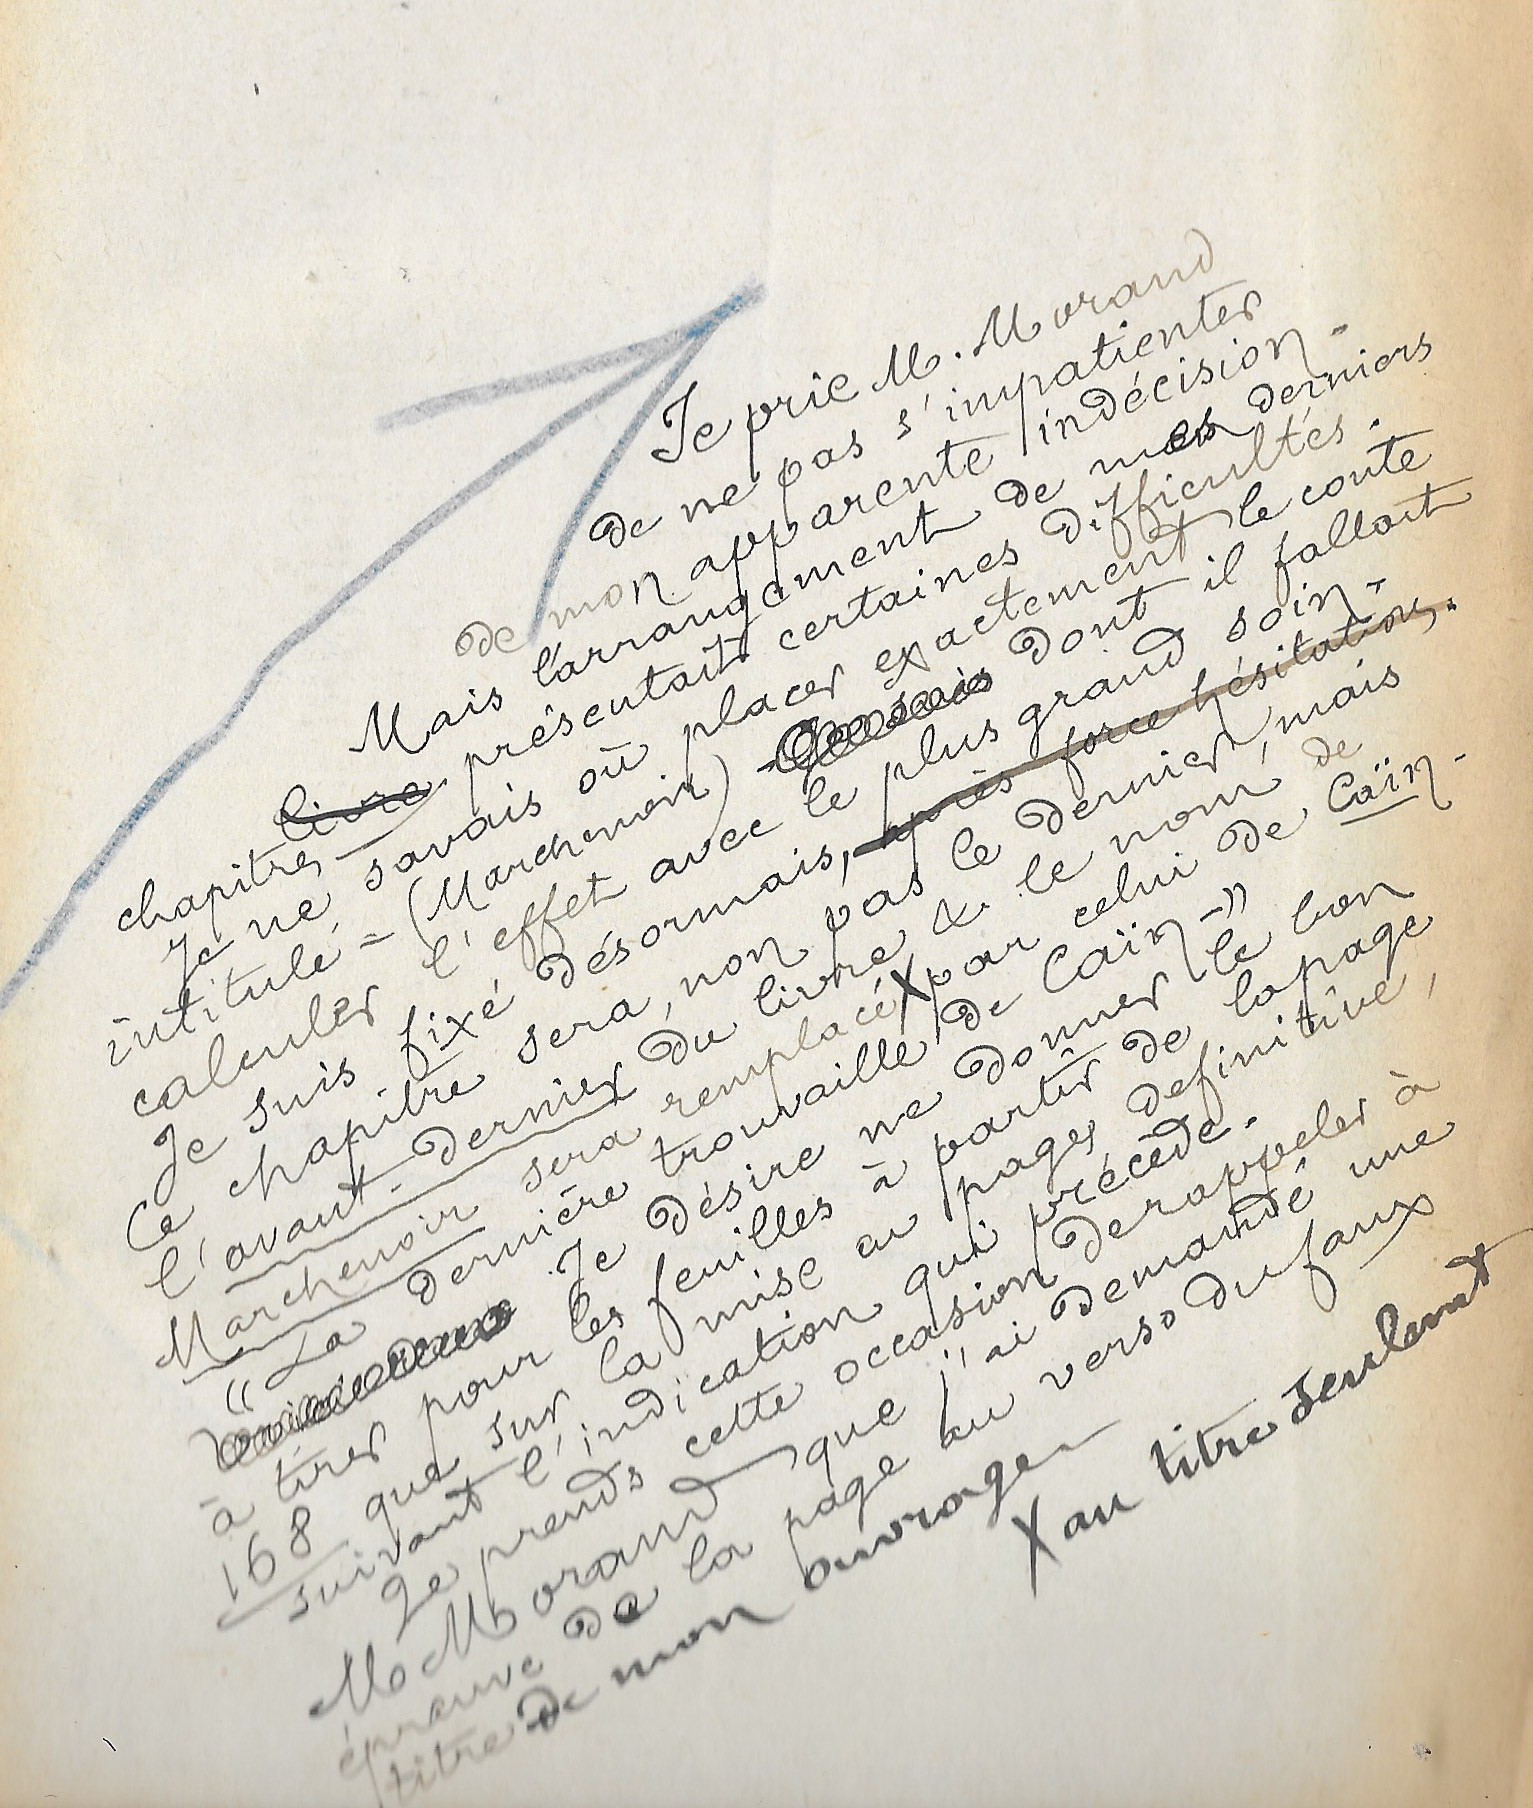 Je prie M. Morand
de ne pas s'impatienter
de mon apparente indécision.
Mais l'arrangement de mes derniers
chapitres livre présentait certaines difficultés.
Je ne savais où placer exactement le conte
intitulé = (Marchenoir) dont il fallait
calculer l'effet avec le plus grand soin.
Je suis fixé désormais, après force hésitations.
Ce chapitre sera, non pas le dernier, mais
l'avant-dernier du livre & le nom de
Marchenoir sera remplacé X par celui de Caïn.
"La dernière trouvaille de Caïn."
Je désire ne donner le bon
à tirer pour les feuilles à partir de la page
168 que sur la mise en pages definitive,
suivant l'indication qui précède.
Je prends cette occasion de rappeler à
M. Morand que j'ai demandé une
épreuve de la page au verso du faux
titre de mon ouvrage
X au titre seulement